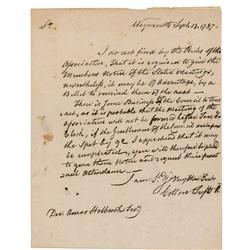 Sr. Weymouth Sept. 13. 1787
I do not find by the Rules of the
Association, that it is required to give the
Members Notice of the Stated Meetings,
nevertheless, it may be of Advantage, by a
Billet to remind them of the next
There is some Business of the Council to
and, as it is probable that the Meeting of the
Association will not be before Ten
Clock, if the Gentlemen of the Council
the Spot by 9 I apprehend that it may
be compleated, you will therefore be pleased to
give them Notice and request their
Attendance
I am Sr. yr. Hum Servt
Cotton Tufts
Doc. Amos Holbrook Secy